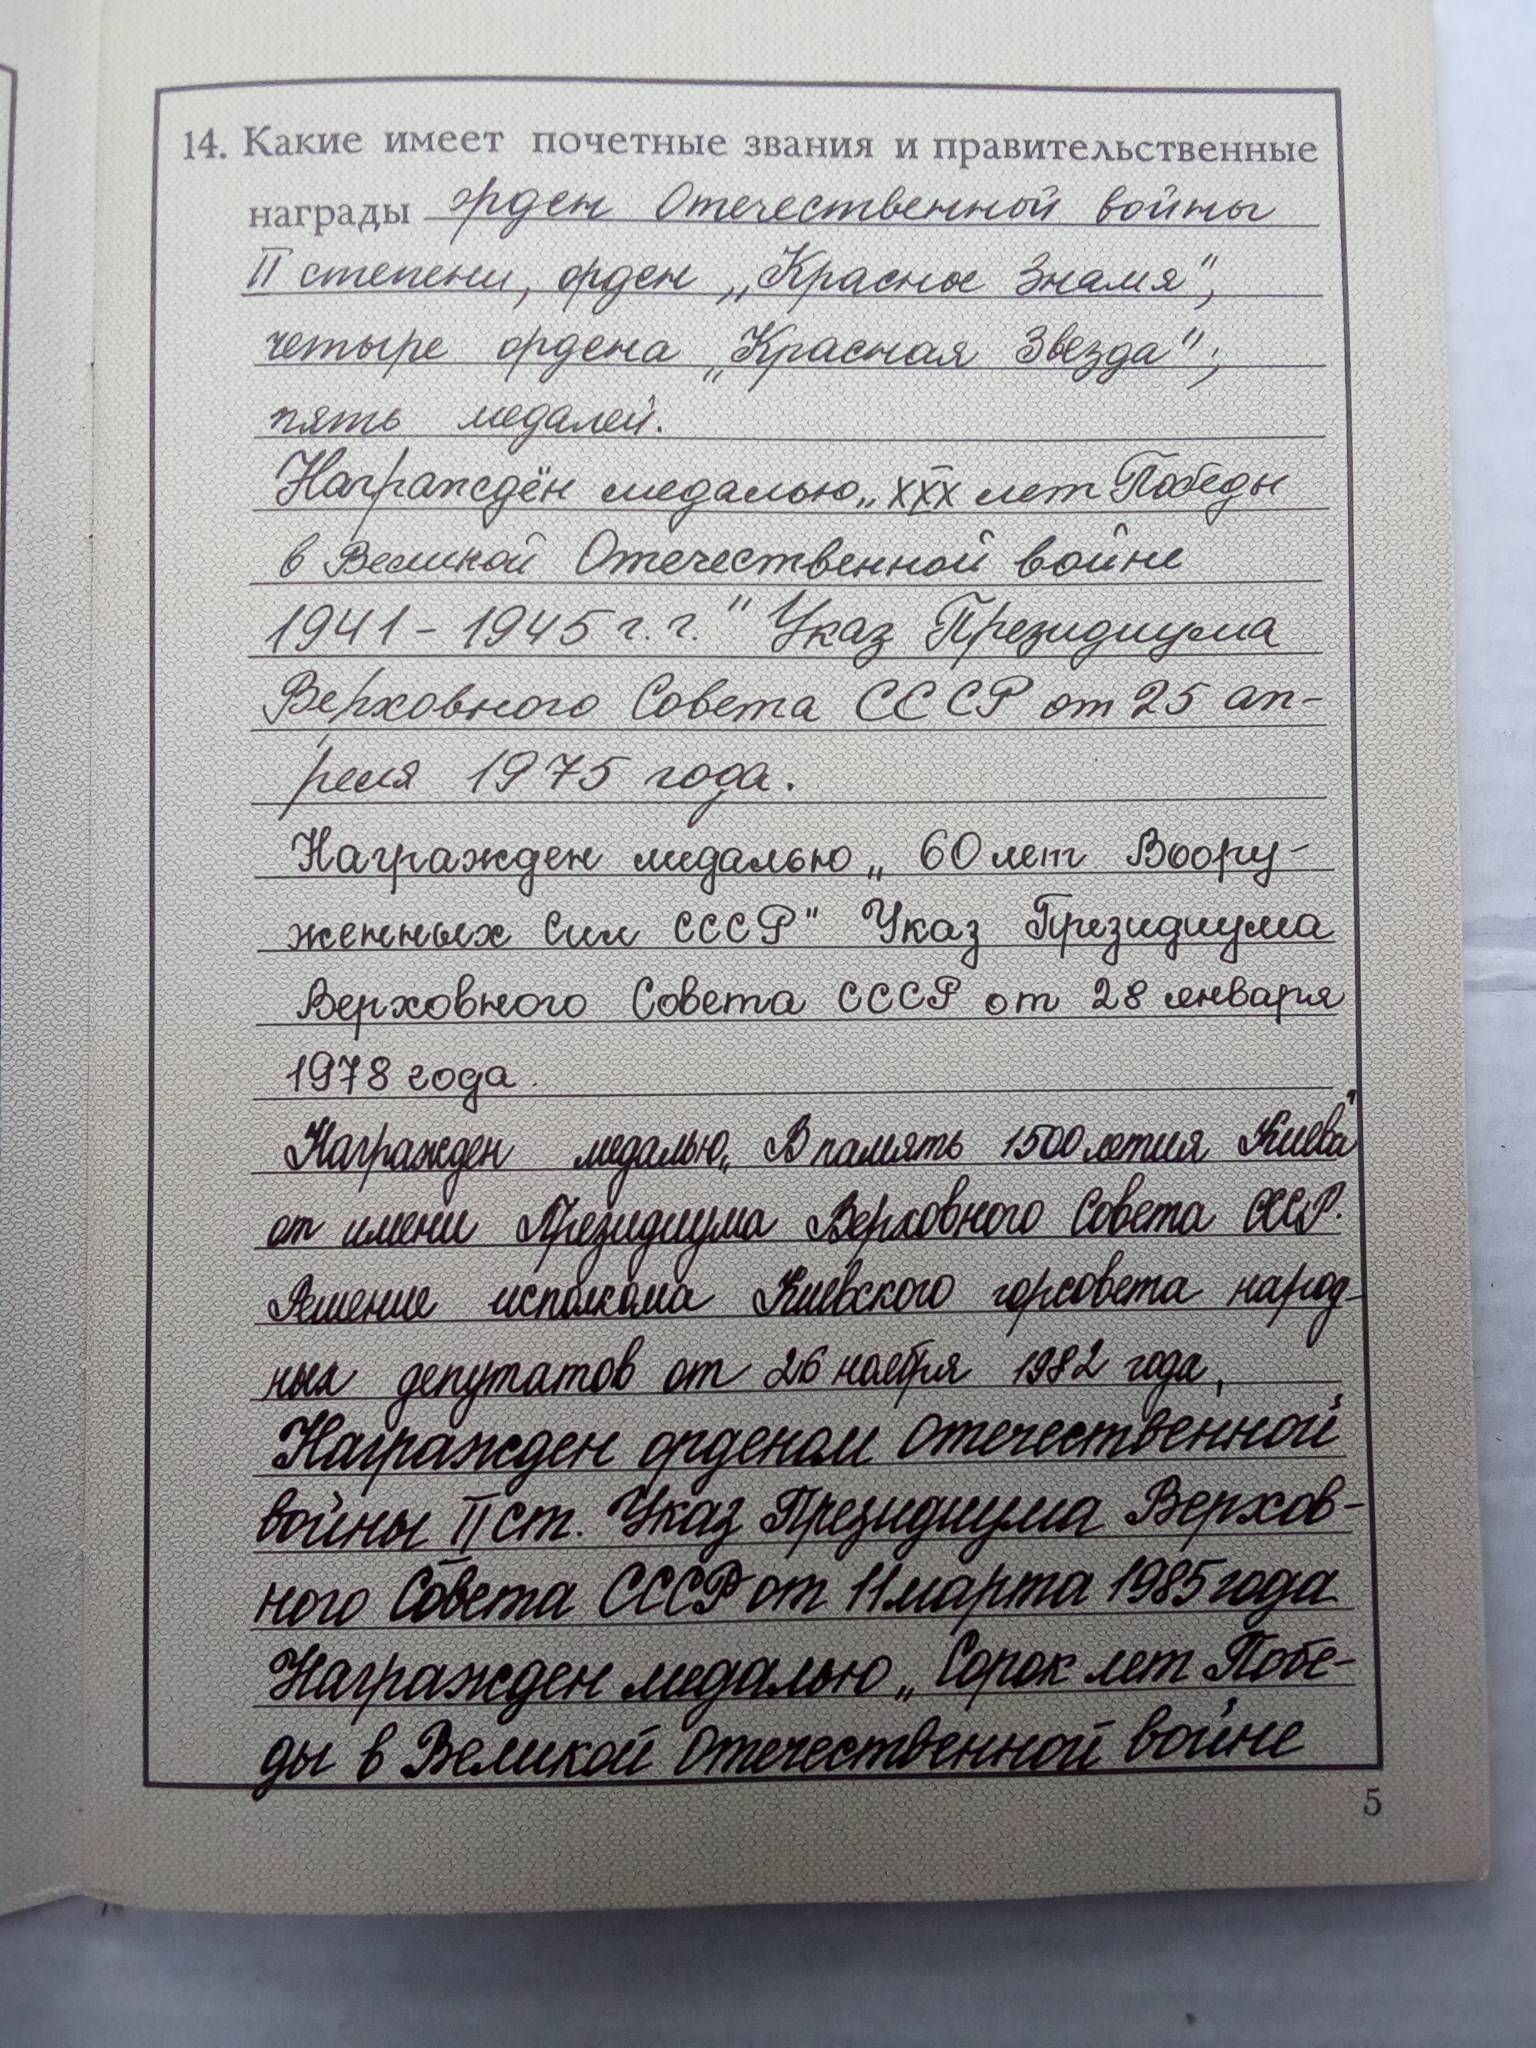 14. Какие имеет почетные звания и правительственные
награды орден Отечественной войны
II степени, орден „Красное Знамя",
четыре ордена „Красная Звезда",
пять медалей.
Награждён медалью „XXX лет Победы
в Великой Отечественной войне
1941 - 1945 г.г." Указ Президиума
Верховного Совета СССР от 25 ап-
реля 1975 года.
Награжден медалью „60 лет Воору-
женных Сил СССР" Указ Президиума
Верховного Совета СССР от 28 января
1978 года.
Награжден медалью „В память 1500летия Киева"
от имени Президиума Верховного Совета СССР.
Решение исполкома Киевского горсовета народ-
ных депутатов от 26 ноября 1982 года,
Награжден орденом Отечественной
войны II ст. Указ Президиума Верхов-
ного Совета СССР от 11 марта 1985 года
Награжден медалью „Сорок лет Побе-
ды в Великой Отечественной войне
5